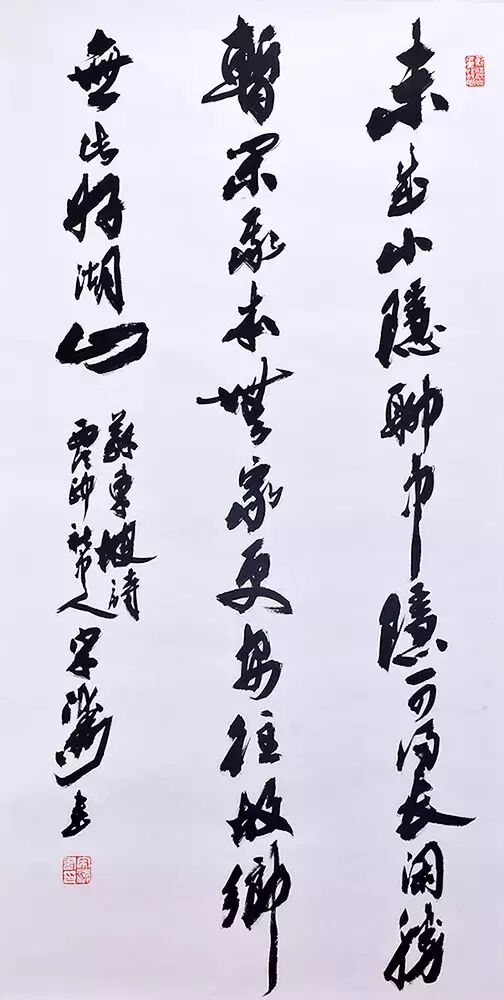 未成小隱聊中隱可得長閑勝
暫閑我本無家更安往故鄉
無此好湖山
蘇東坡詩
人宋書